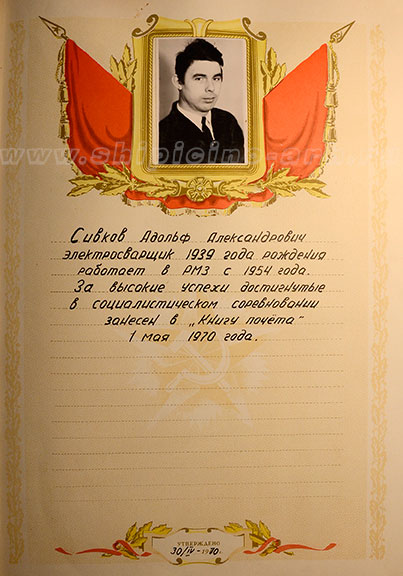 Сивков Адольф Александрович
электросварщик 1939 года рождения
работает в РМЗ с 1954 года.
За высокие успехи достигнутые
в социалистическом соревновании
занесен в „Книгу почёта"
1 мая 1970 года.
УТВЕРЖДЕНО
30/IV-1970г.